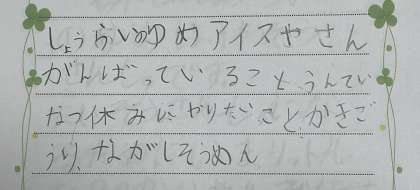 しょうらいのゆめ アイスやさん
がんばっていること、うんてい
なつ休みにやりたいこと、かきご
うり、ながしそうめん